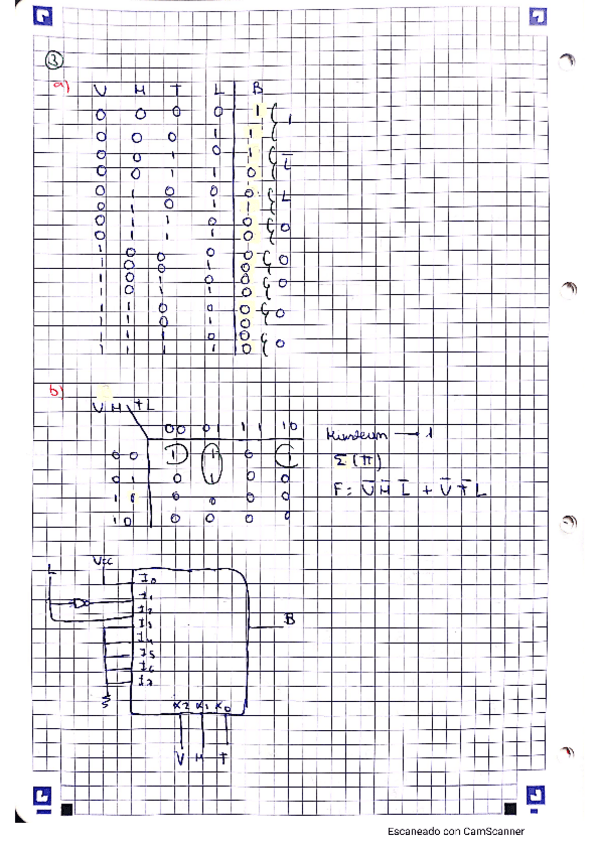 3
a)
V H T L B
0 0 0 0 1 { 1
0 0 0 1 1
0 0 1 0 1 { L̅
0 0 1 1 0
0 1 0 0 0 { L
0 1 0 1 1
0 1 1 0 0 { 0
0 1 1 1 0
1 0 0 0 0 { 0
1 0 0 1 0
1 0 1 0 0 { 0
1 0 1 1 0
1 1 0 0 0 { 0
1 1 0 1 0
1 1 1 0 0 { 0
1 1 1 1 0
b)
VH TL
00 01 11 10
00 1 1 0 1
01 0 1 0 0
11 0 0 0 0
10 0 0 0 0
→ 1
Σ(π)
F: V̅ H̅ L̅ + V̅ T̅ L
Vcc
L
I0
I1
I2
I3
I4
I5
I6
I7
B
X2 X1 X0
V H T
Escaneado con CamScanner